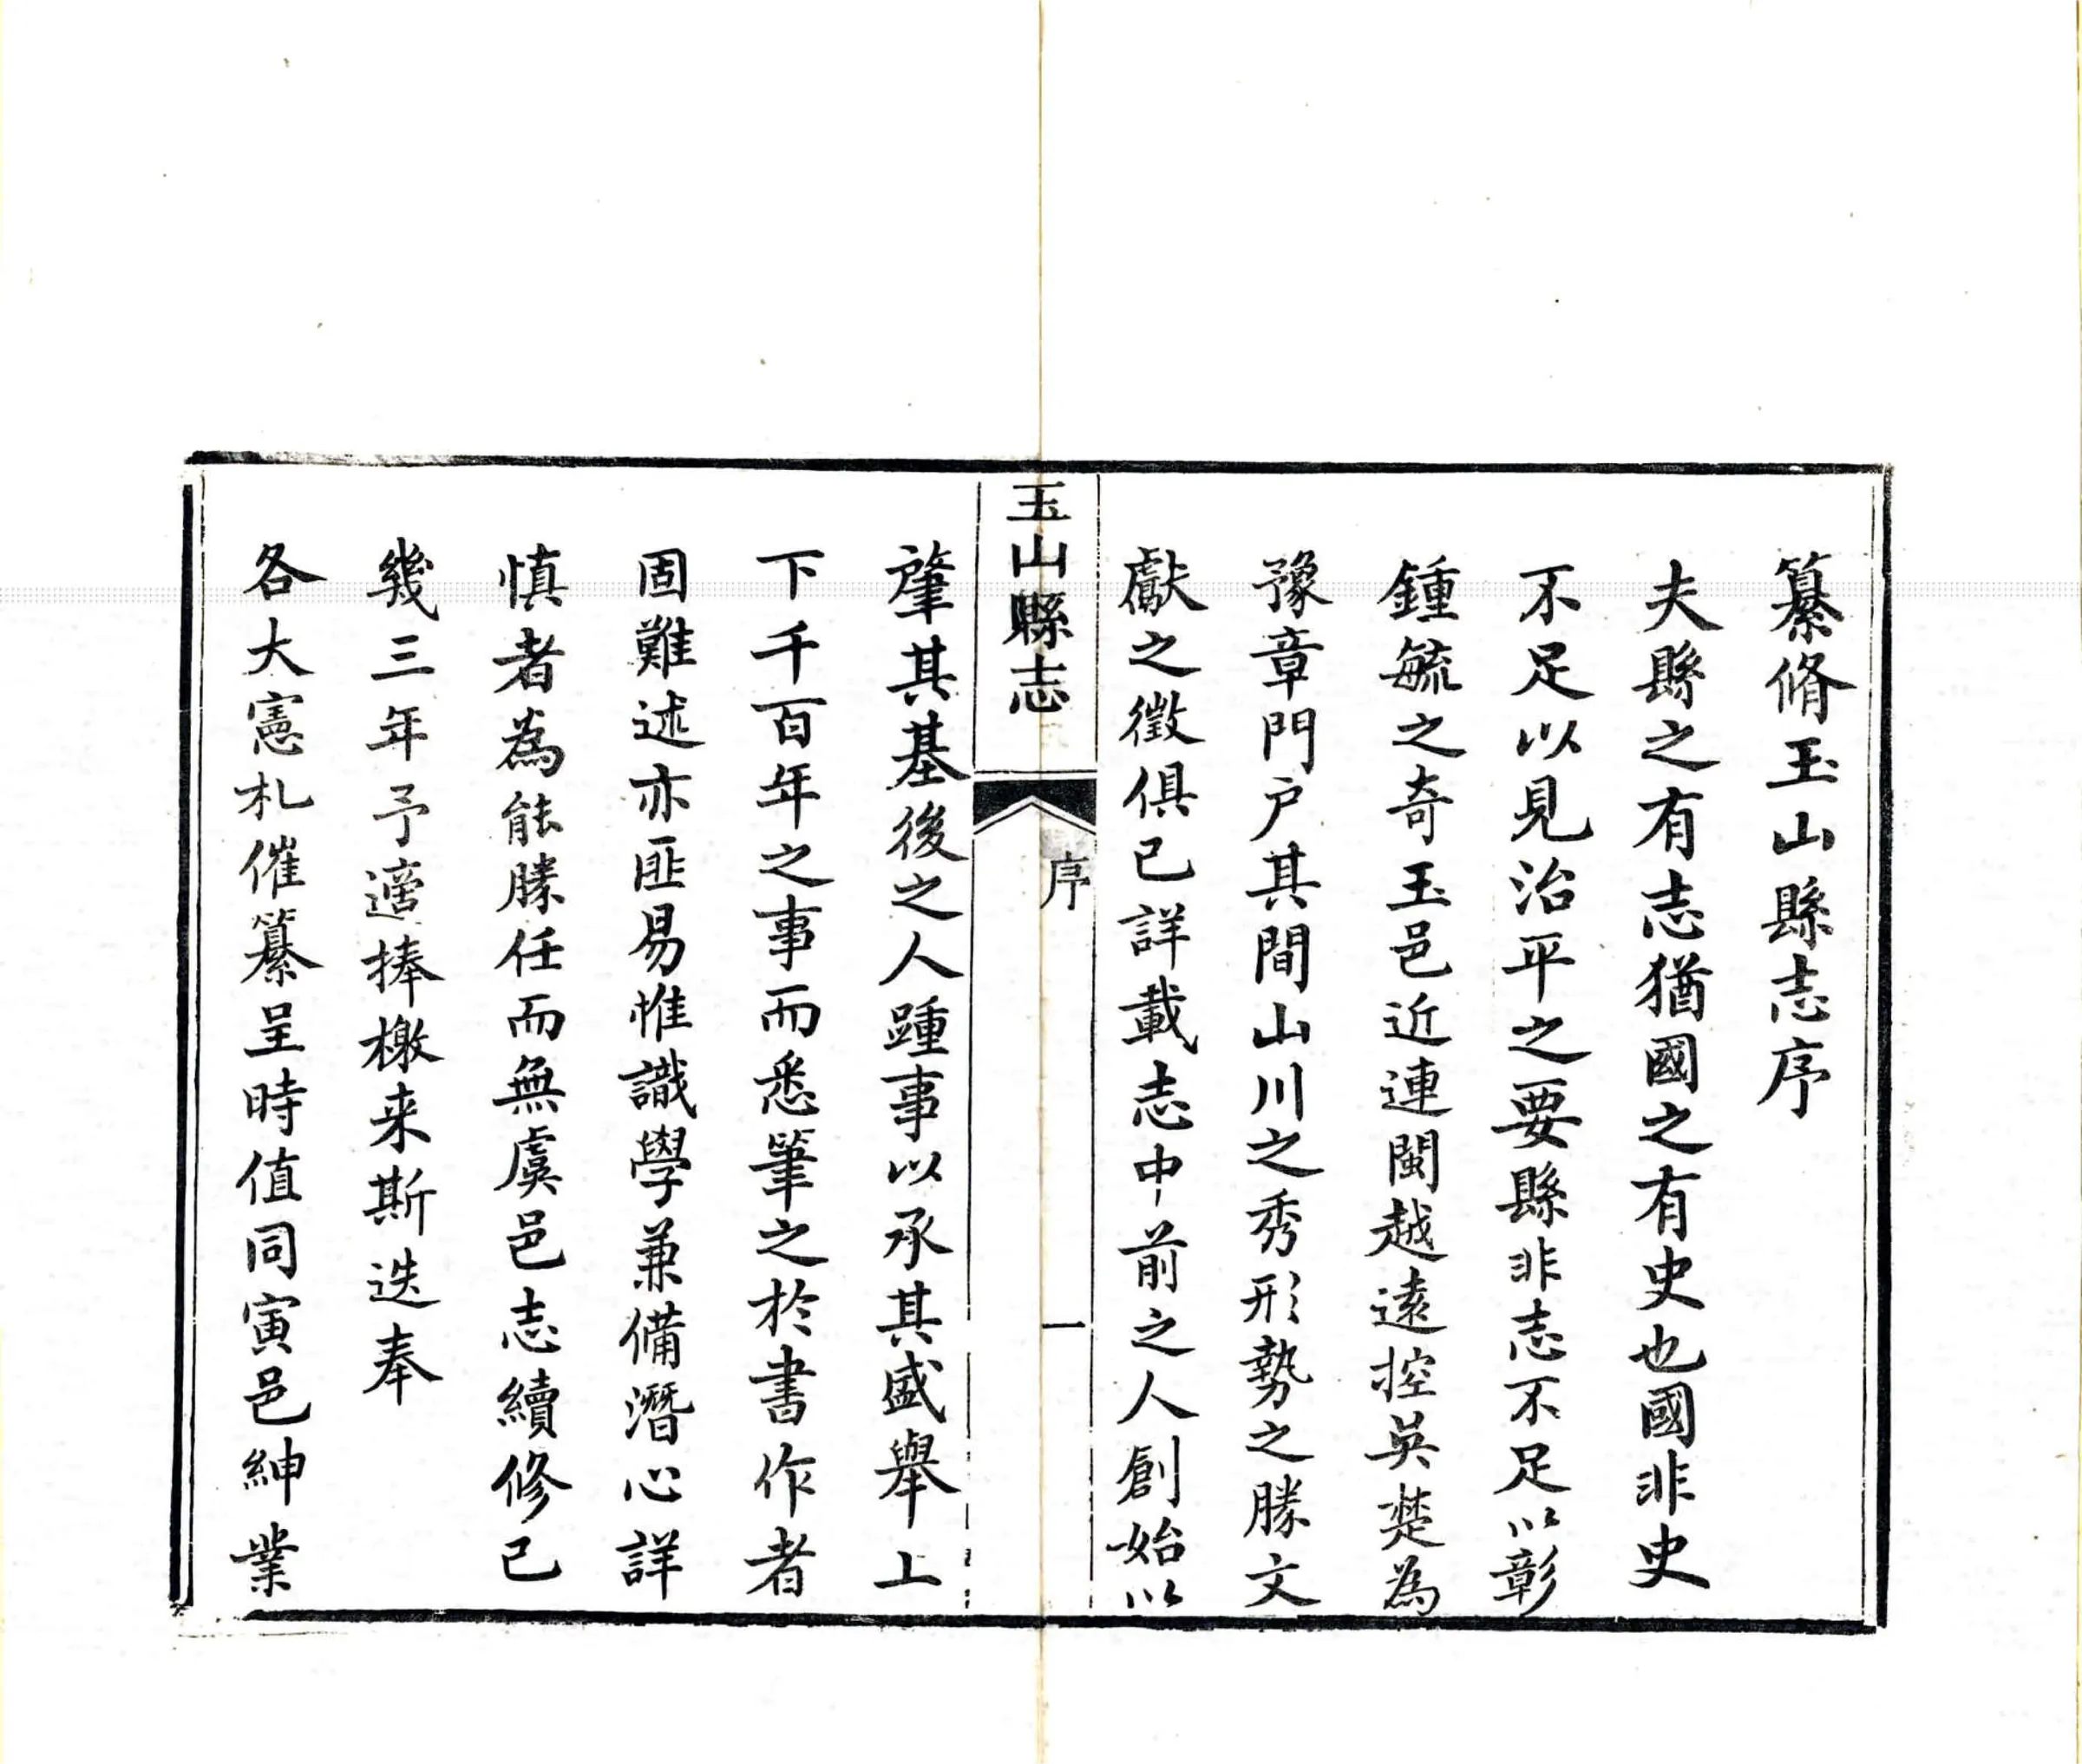 纂脩玉山縣志序
夫縣之有志猶國之有史也國非史
不足以見治平之要縣非志不足以彰
鍾毓之奇玉邑近連閩越遠控吳楚為
豫章門戶其間山川之秀形勢之勝文
獻之徵俱已詳載志中前之人創始以
玉山縣志
序
一
肇其基後之人踵事以承其盛舉上
下千百年之事而悉筆之於書作者
固難述亦匪易惟識學兼備潛心詳
慎者為能勝任而無虞邑志續修已
幾三年予適捧檄来斯迭奉
各大憲札催纂呈時值同寅邑紳業